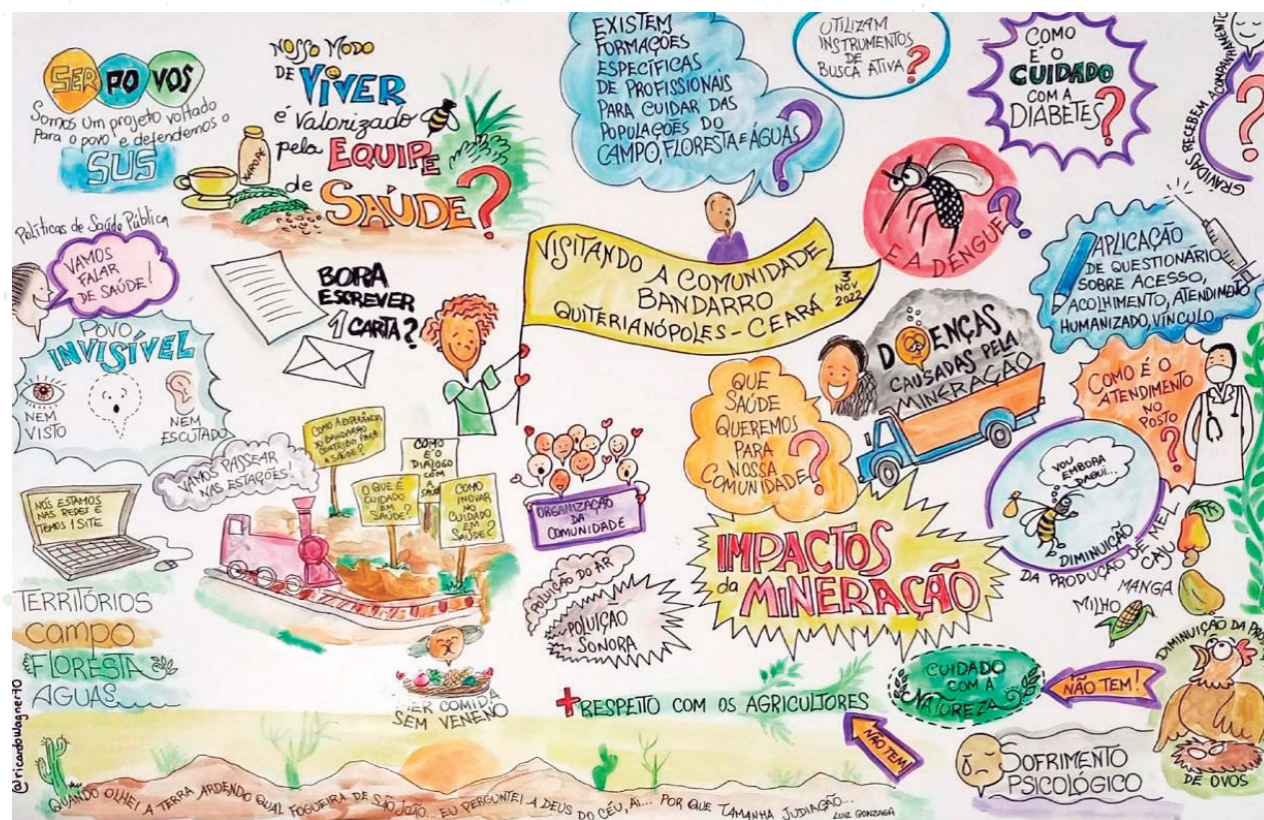 SER POVOS
Somos um projeto voltado
para o povo e defendemos o
SUS
NOSSO MODO
DE VIVER
é valorizado
pela EQUIPE
de
SAÚDE?
EXISTEM
FORMAÇÕES
ESPECÍFICAS
DE PROFISSIONAIS
PARA CUIDAR DAS
POPULAÇÕES DO
CAMPO, FLORESTA E ÁGUAS
?
UTILIZAM
INSTRUMENTOS
DE
BUSCA ATIVA?
COMO
É O
CUIDADO
COM A
DIABETES?
GRÁVIDAS RECEBEM ACOMPANHAMENTO
?
Políticas de Saúde Pública
VAMOS
FALAR
DE SAÚDE!
BORA
ESCREVER
1 CARTA?
VISITANDO A COMUNIDADE
BANDARRO
QUITERIANÓPOLES - CEARÁ
3
NOV
2022
E A DENGUE?
APLICAÇÃO
DE QUESTIONÁRIO
SOBRE ACESSO,
ACOLHIMENTO, ATENDIMENTO
HUMANIZADO, VÍNCULO
POVO
INVISÍVEL
NEM
VISTO
NEM
ESCUTADO
QUE
SAÚDE
QUEREMOS
PARA
NOSSA
COMUNIDADE?
DOENÇAS
CAUSADAS PELA
MINERAÇÃO
COMO É O
ATENDIMENTO
NO
POSTO
?
VAMOS PASSEAR
NAS ESTAÇÕES!
COMO A EXPERIÊNCIA
DO BANDARRO
CONTRIBUI PARA
A SAÚDE?
COMO
É O
DIÁLOGO
COM
A
O QUE É
CUIDADO
EM
SAÚDE?
COMO
INOVAR
NO
CUIDADO
EM
SAÚDE?
NÓS ESTAMOS
NAS REDES E
TEMOS 1 SITE
ORGANIZAÇÃO
DA
COMUNIDADE
VOU
EMBORA
DAQUI...
DIMINUIÇÃO
DA PRODUÇÃO DE MEL
CAJU
MANGA
MILHO
IMPACTOS
da MINERAÇÃO
POLUIÇÃO DO AR
POLUIÇÃO
SONORA
TERRITÓRIOS
CAMPO
FLORESTA
AGUAS
COMIDA
SEM VENENO
+ RESPEITO COM OS AGRICULTORES
NÃO TEM!
CUIDADO
COM A
NATUREZA
NÃO TEM!
DIMINUIÇÃO DA
DE OVOS
SOFRIMENTO
PSICOLÓGICO
@ricardowagner70
QUANDO OLHEI A TERRA ARDENDO QUAL FOGUEIRA DE SÃO JOÃO... EU PERGUNTEI A DEUS DO CÉU, AI... POR QUE TAMANHA JUDIAÇÃO...
LUIZ GONZAGA